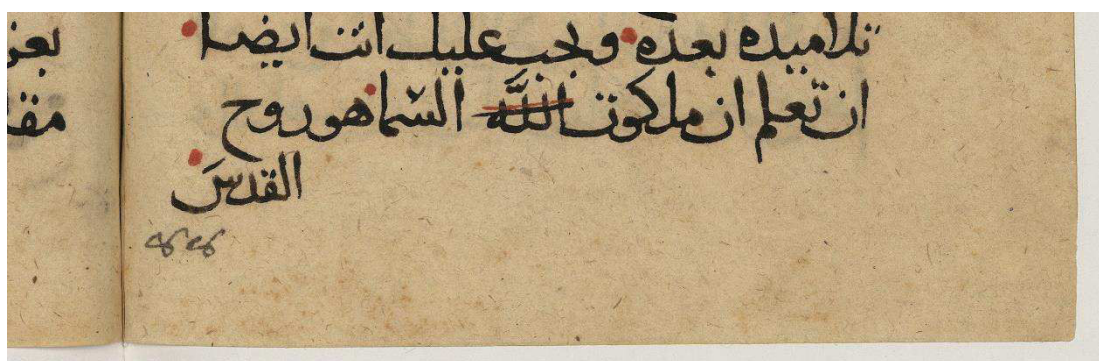 تلاميده بعده ويجب عليك انت ايضا
ان تعلم ان ملكوت الله السما هو روح
القدس
بعز
مقا